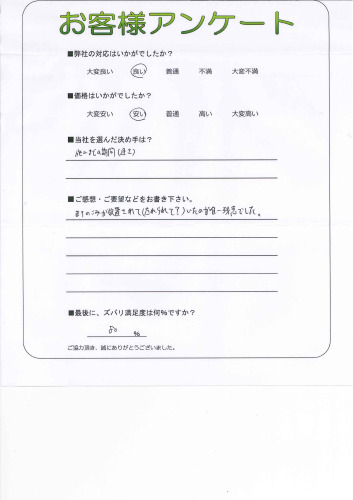 お客様アンケート
■弊社の対応はいかがでしたか？
大変良い 良い 普通 不満 大変不満
■価格はいかがでしたか？
大変安い 安い 普通 高い 大変高い
■当社を選んだ決め手は？
■ご感想・ご要望などをお書き下さい。
が放置されて いたのが 残念でした。
■最後に、ズバリ満足度は何%ですか？
80 %
ご協力頂き、誠にありがとうございました。